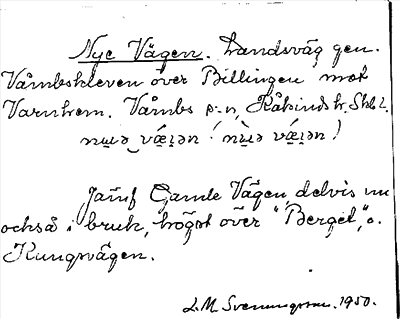 Nye Vägen. Landsväg gen.
Våmbskleven över Billingen mot
Varnhem. Våmbs s:n, Kåkinds hr. Skbl.
nɯ̀ə vǽi̯ən (nɯ̀ə vǽi̯ən)
Jämf Gamle Vägen, delvis nu
också i bruk, högst över "Berget", o.
Kungsvägen.
L.M. Svenungsson. 1950.